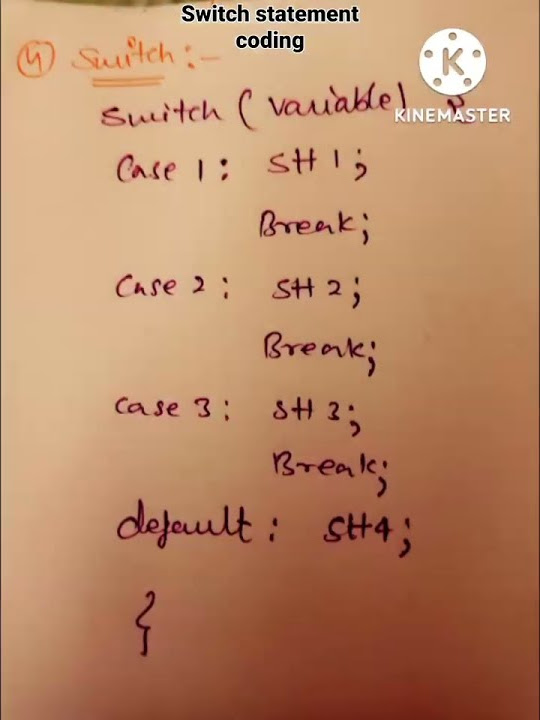 Switch statement
coding
(4) Switch :-
KINEMASTER
switch (variable) {
Case 1: stt 1;
Break;
Case 2: stt 2;
Break;
Case 3: stt 3;
Break;
default: stt4;
{